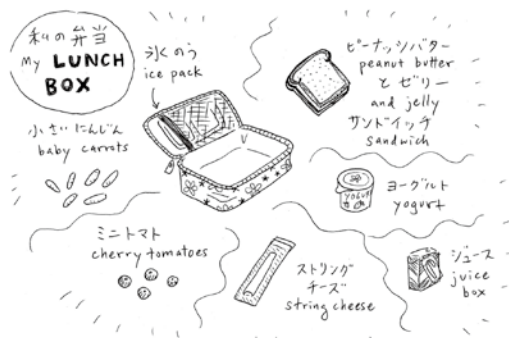 私の弁当
My LUNCH
BOX
氷のう
ice pack
ピーナッツバター
peanut butter
と ゼリー
and jelly
サンドイッチ
sandwich
小さいにんじん
baby carrots
YOGURT
ヨーグルト
yogurt
ミニトマト
cherry tomatoes
ストリング
チーズ
string cheese
ジュース
juice
box